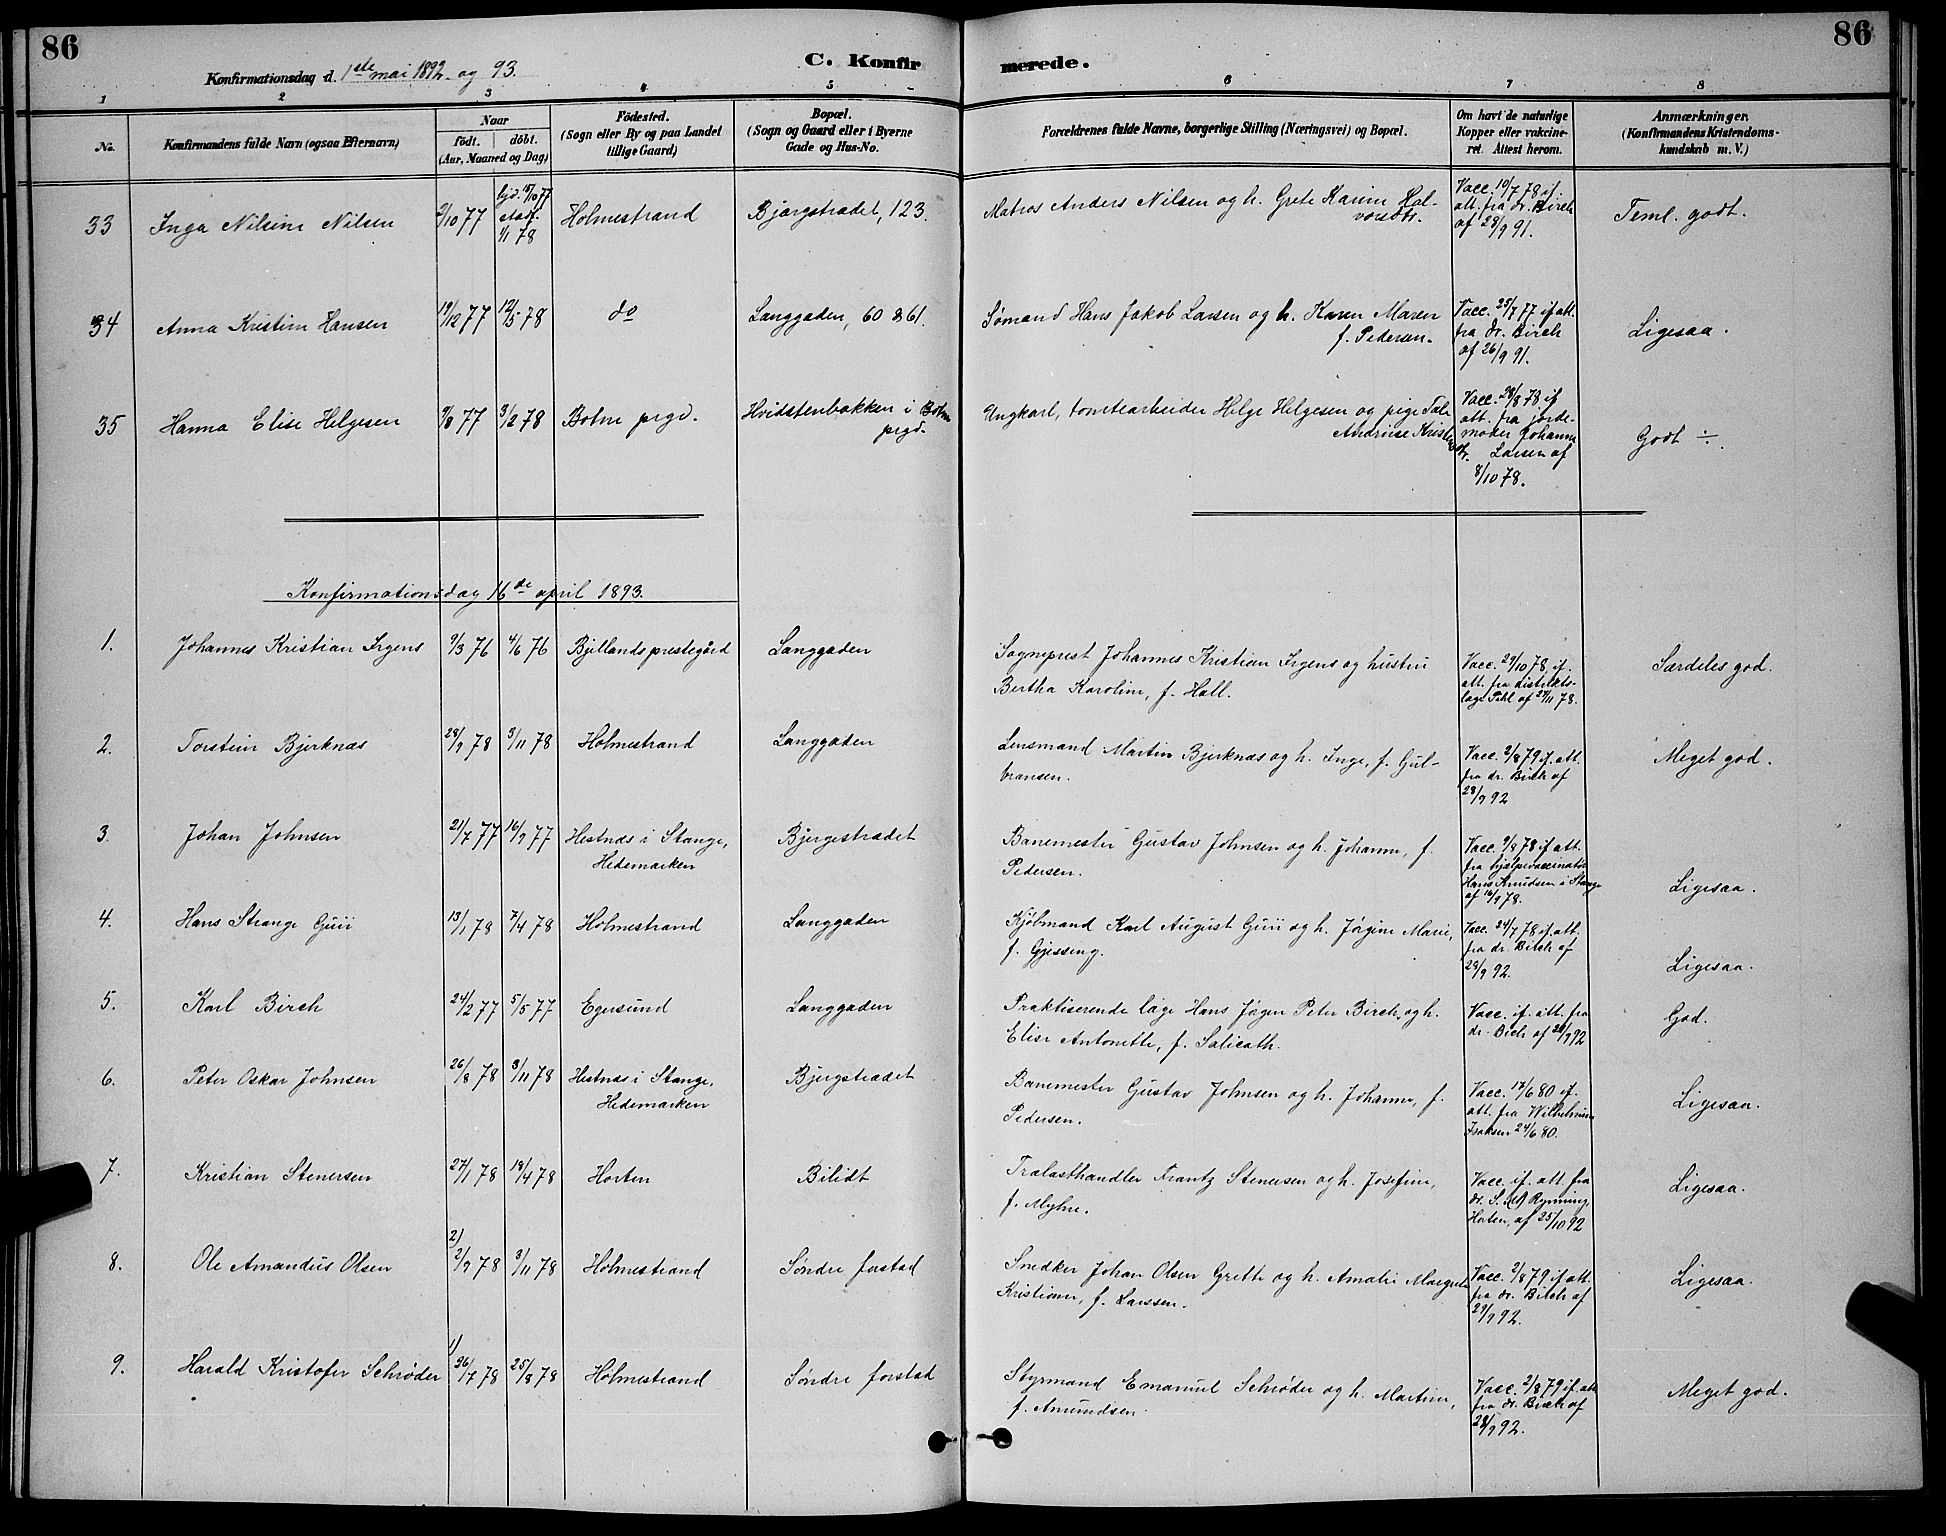 86
Konfirmationsdag d. 1ste mai 1892 og 93.
C. Konfirmerede.
86
1 2 3 4 5 6 7 8
No.
Konfirmandens fulde Navn (ogsaa Efternavn)
Naar
födt. döbt.
(Aar, Maaned og Dag)
Födested.
(Sogn eller By og paa Landet
tillige Gaard)
Bopæl.
(Sogn og Gaard eller i Byerne
Gade og Hus-No.
Forældrenes fulde Navne, borgerlige Stilling (Næringsvei) og Bopæl.
Om havt de naturlige
Kopper eller vakcine-
ret. Attest herom.
Anmærkninger.
(Konfirmandens Kristendoms-
kundskab m. V.)
33 Inga Nilsine Nilsen 2/10 77 hjd. 15/10 77 stadf. 1/1 78 Holmestrand Bjærgstrædet, 123. Matros Anders Nilsen og h. Grete Karine Hal-
vorsdtr.
Vacc. 10/7 78 if.
att. fra dr. Birch
af 28/9 91.
Teml. godt.
34 Anna Kristine Hansen 19/12 77 12/5 78 do Langgaden, 60 & 61. Sømand Hans Jakob Larsen og h. Karen Maren
f. Pedersen.
Vacc. 25/7 77 if att.
fra dr. Birch
af 26/9 91.
Ligesaa.
35 Hanna Elise Helgesen 9/8 77 3/2 78 Botne prgd. Hvidstenbakken i Botne
prgd.
Ungkarl, tomtearbeider Helge Helgesen og pige Tale
Andrine Kristensdtr.
Vacc. 28/8 78 if
att. fra jorde-
moder Johanne
Larsen af
8/10 78.
Godt ÷.
Konfirmationsdag 16de april 1893.
1. Johannes Kristian Irgens 9/3 76 4/6 76 Bjellands prestegård Langgaden Sogneprest Johannes Kristian Irgens og hustru
Bertha Karoline, f. Hall.
Vacc. 29/10 78 if.
att. fra distrikts-
læge Pihl af 27/11 78.
Særdeles god.
2. Torstein Bjerknæs 28/9 78 3/11 78 Holmestrand Langgaden Lensmand Martin Bjerknæs og h. Inge, f. Gul-
bransen.
Vacc. 2/8 79 if. att.
fra dr. Birch af
28/9 92
Meget god.
3. Johan Johnsen 21/7 77 16/9 77 Hestnæs i Stange,
Hedemarken
Bjergestrædet Banemester Gustav Johnsen og h. Johanne, f.
Pedersen.
Vacc. 9/8 78 if att.
fra hjælpevaccinatør
Hans Knudsen i Stange
af 16/9 78.
Ligesaa.
4. Hans Strange Guii 13/1 78 7/4 78 Holmestrand Langgaden Kjøbmand Karl August Guii og h. Jørgine Marie,
f. Gjessing.
Vacc. 24/7 78 if. att.
fra dr. Birch af
29/9 92.
Ligesaa.
5. Karl Birch 24/2 77 5/5 77 Egersund Langgaden Praktiserende læge Hans Jørgen Peter Birch og h.
Elise Antonette, f. Salicath.
Vacc. if. att. fra
dr. Birch af 28/9 92
God.
6. Peter Oskar Johnsen 26/8 78 3/11 78 Hestnæs i Stange,
Hedemarken
Bjergstrædet Banemester Gustav Johnsen og h. Johanne, f.
Pedersen.
Vacc. 17/6 80 if.
att. fra Wilhelmine
Isaksen 24/6 80.
Ligesaa.
7. Kristian Stenersen 27/1 78 18/4 78 Horten Bilidt Trælasthandler Frantz Stenersen og h. Josefine,
f. Myhre.
Vacc. if. att. fra
dr. Rynning,
Horten, af 25/10 92
Ligesaa.
8. Ole Amandus Olsen 2) 2/9 78 3/11 78 Holmestrand Søndre forstad Snedker Johan Olsen Grette og h. Amalie Margrete
Kristiane, f. Larssen.
Vacc. 2/8 79 if att.
fra dr. Birch af
29/9 92.
Ligesaa.
9. Harald Kristofer Schrøder 1) 26/7 78 25/8 78 Holmestrand Søndre forstad Styrmand Emanuel Schrøder og h. Martine,
f. Amundsen.
Vacc. 2/8 79 if. att
fra dr. Birch af
28/9 92.
Meget god.